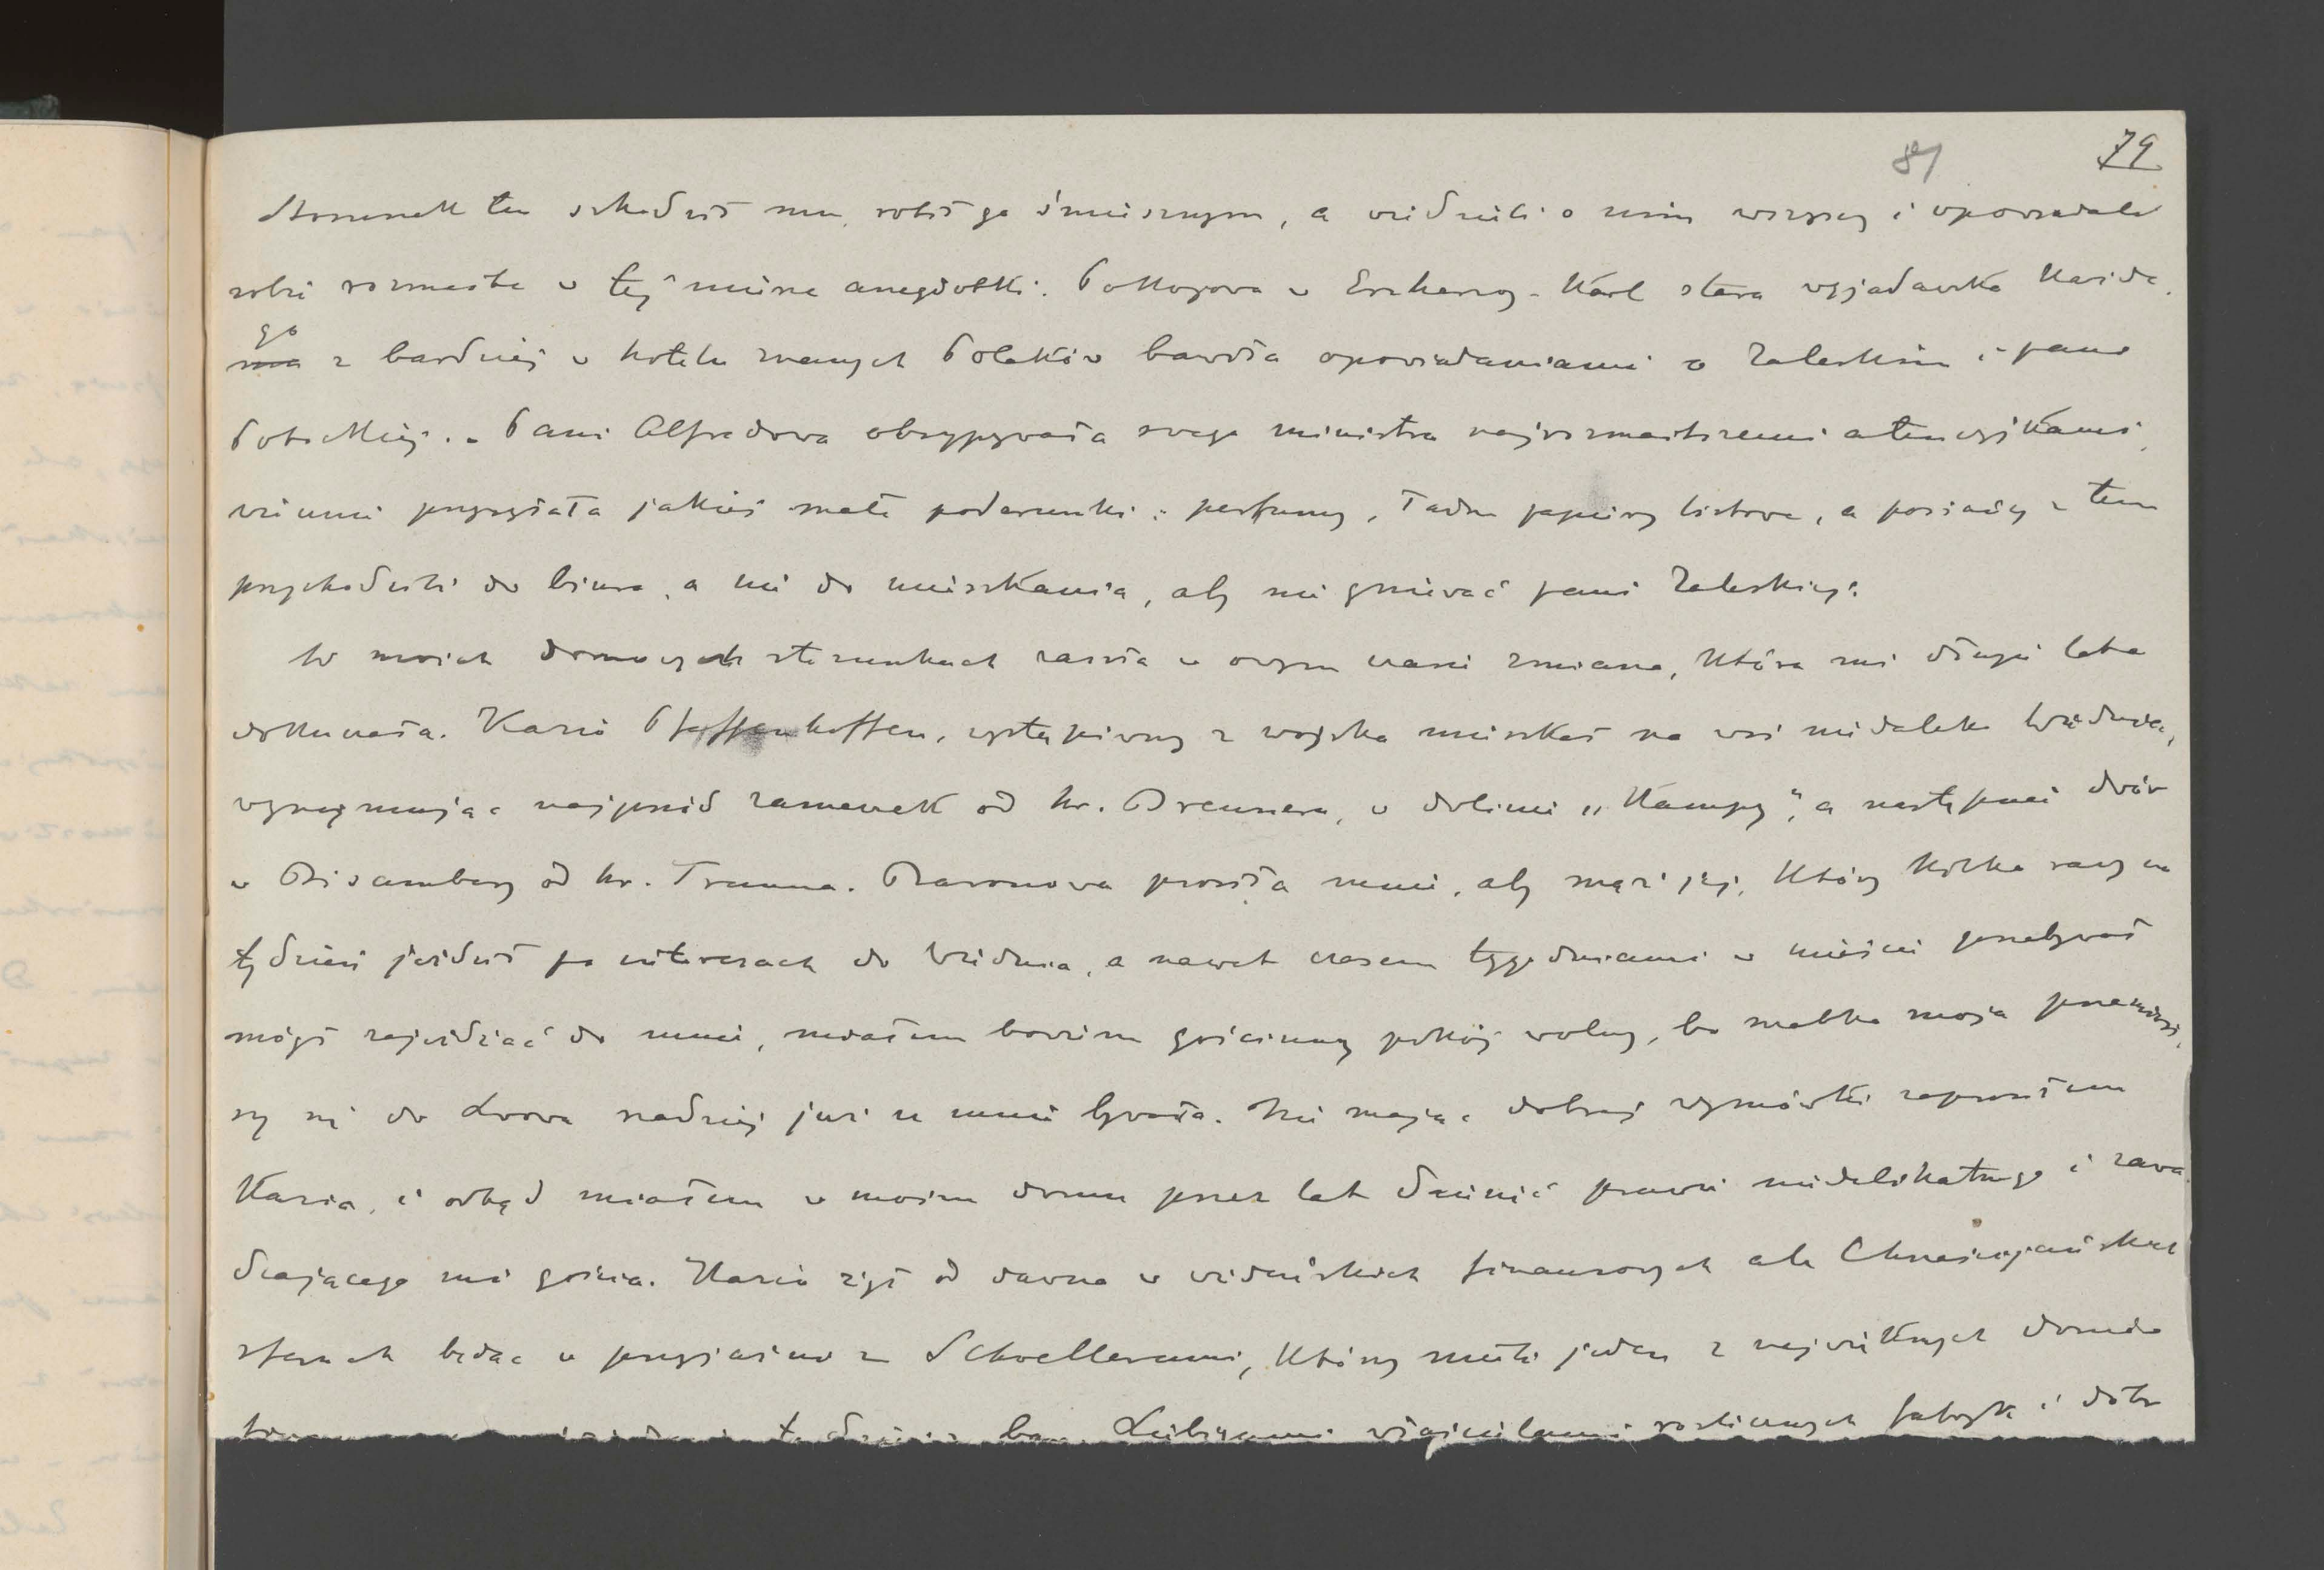 81 79
Stosunek ten szkodził mu, robił go śmiesznym, a wiedzieli o nim wszyscy i opowiadali
sobie rozmaite w tej mierze anegdotki. Pokojowa w Erzherzog-Karl stara wyjadaczka każde
go z bardziej w hotelu znanych Polaków bawiła opowiadaniami o Zaleskim i pani
Potockiej. Pani Alfredowa obsypywała swego ministra najrozmaitszemi atencyjkami,
wiecznie przysyłała jakieś małe podarunki: perfumy, ładne papiery listowe, a posłańcy z tem
przychodzili do biura, a nie do mieszkania, aby nie gniewać pani Zaleskiej.
W moich domowych stosunkach zaszła w owym czasie zmiana, która mi długie lata
dokuczała. Karlo Pfaffenhoffen, wystąpiwszy z wojska mieszkał na wsi niedaleko Wiednia,
wynajmując najprzód zameczek od hr. Breunera, w dolinie „Kampy", a następnie dwór
w Bisamberg od hr. Trauna. Baronowa prosiła mnie, aby mąż jej, który kilka razy na
tydzień jeździł po interesach do Wiednia, a nawet czasem tygodniami w mieście przebywał
mógł zajeżdżać do mnie, miałem bowiem gościnny pokój wolny, bo matka moja przeniósł
szy się do Lwowa rzadziej już u mnie bywała. Nie mając dobrej wymówki zaprosiłem
Karla, i odtąd miałem w moim domu przez lat dziesięć prawie niedelikatnego i zawa
dzającego mi gościa. Karlo żył od dawna w wiedeńskich finansowych ale Chrześcijańskich
sferach będąc w przyjaźni z Schoellerami, którzy mieli jeden z największych domów
Leibigami właścicielami rozlicznych fabryk i dóbr